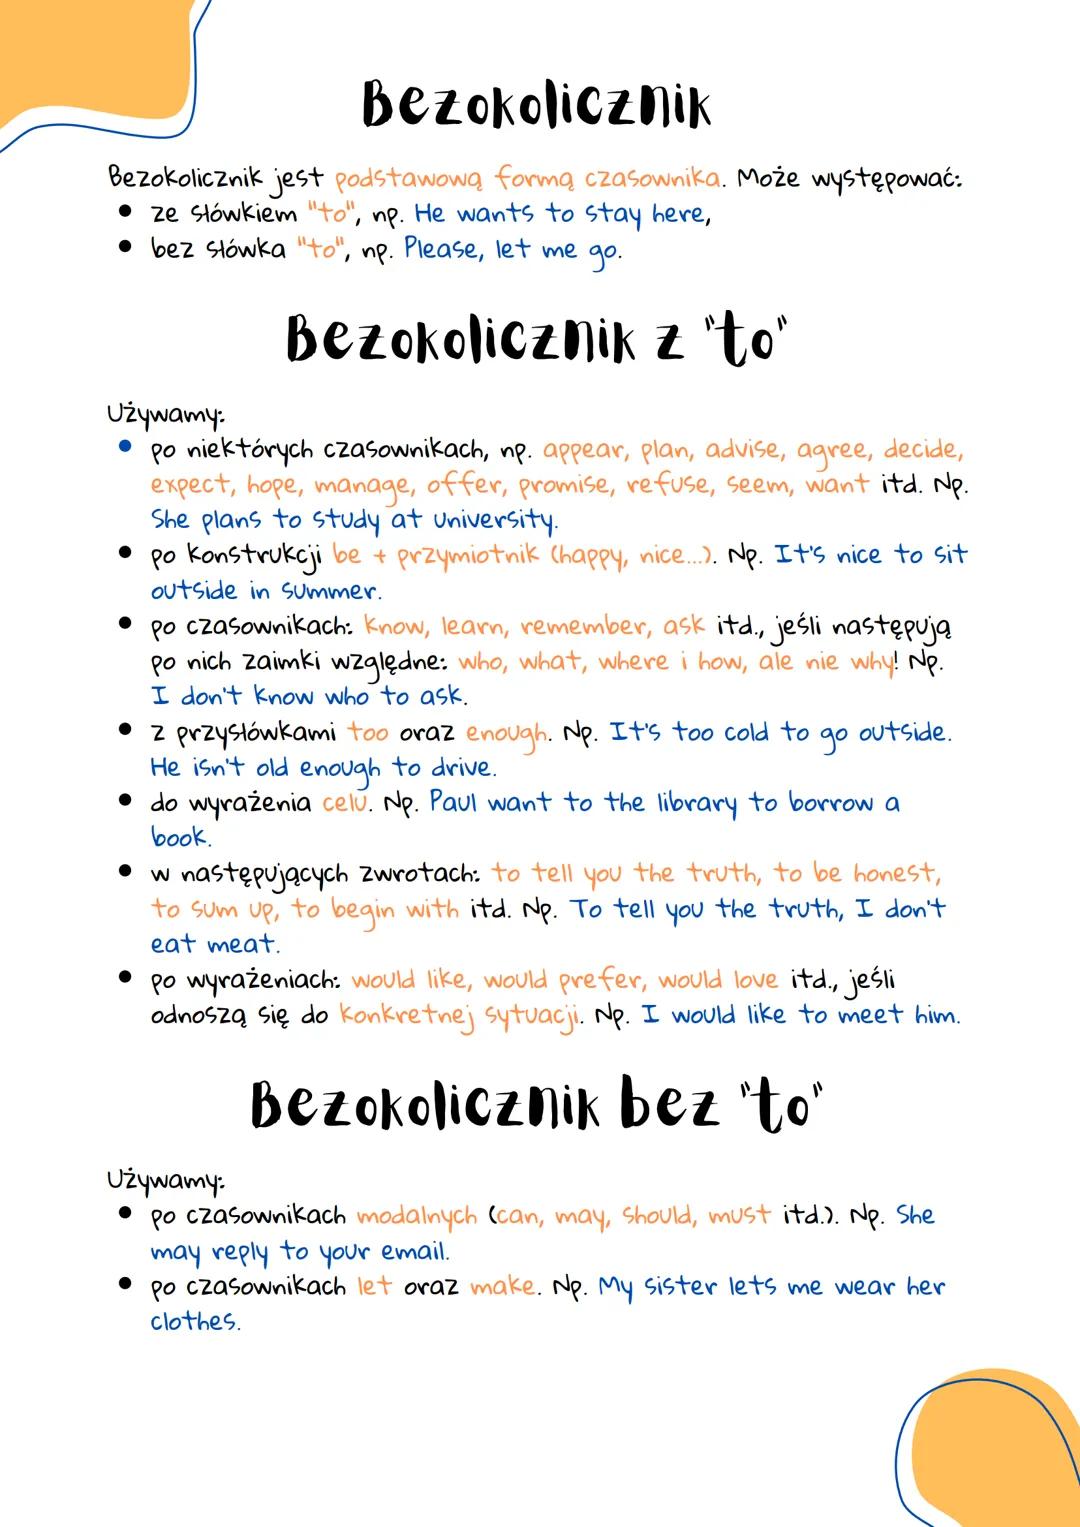 Bezokolicznik
Bezokolicznik jest podstawową formą czasownika. Może występować:
• ze słówkiem "to", np. He wants to stay here,
• bez słówka "to", np. Please, let me go.
Bezokolicznik z "to"
Używamy:
• po niektórych czasownikach, np. appear, plan, advise, agree, decide,
expect, hope, manage, offer, promise, refuse, seem, want itd. Np.
She plans to study at university.
• po konstrukcji be + przymiotnik (happy, nice...). Np. It's nice to sit
outside in summer.
• po czasownikach: know, learn, remember, ask itd., jeśli następują
po nich zaimki względne: who, what, where i how, ale nie why! Np.
I don't know who to ask.
• z przysłówkami too oraz enough. Np. It's too cold to go outside.
He isn't old enough to drive.
• do wyrażenia celu. Np. Paul want to the library to borrow a
book.
• w następujących zwrotach: to tell you the truth, to be honest,
to sum up, to begin with itd. Np. To tell you the truth, I don't
eat meat.
• po wyrażeniach: would like, would prefer, would love itd., jeśli
odnoszą się do konkretnej sytuacji. Np. I would like to meet him.
Bezokolicznik bez "to"
Używamy:
• po czasownikach modalnych (can, may, should, must itd.). Np. She
may reply to your email.
• po czasownikach let oraz make. Np. My sister lets me wear her
clothes.